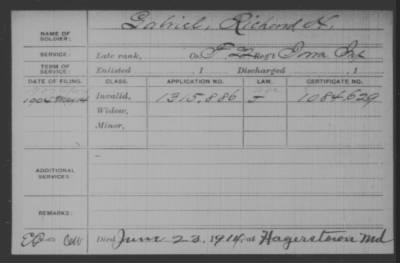 NAME OF SOLDIER: Gabriel, Richard A.
SERVICE: Late rank, Co. F Reg't Iowa Inf
TERM OF SERVICE: Enlisted 1 Discharged , 1
DATE OF FILING. CLASS. APPLICATION NO. LAW. CERTIFICATE NO.
1904 May 14 Invalid, 1315,886 1084,629
Widow,
Minor,
ADDITIONAL SERVICES:
REMARKS:
Died June 23, 1914, at Hagerstown Md